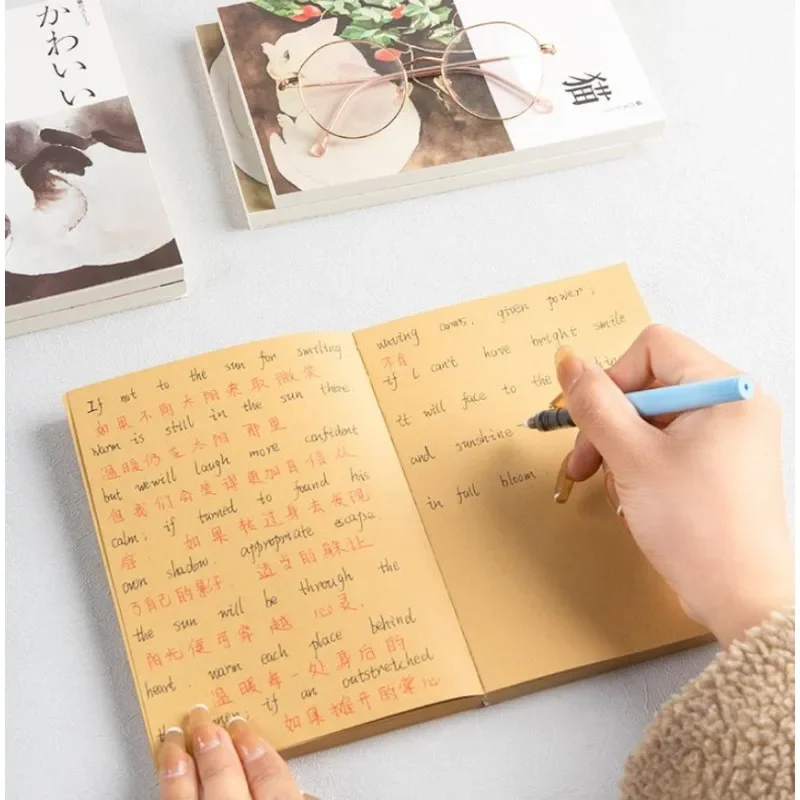 かわいい
猫
If not to the sun for smiling
如果不向太阳来取微笑
warm is still in the sun there.
温暖仍在太阳那里
but we will laugh more confident
但我们会笑得更加自信从
calm; if turned to found his
容。如果转过身去发现
own shadow. appropriate escape.
了自己的影子. 适当的躲让
the sun will be through the
阳光便可穿越心灵.
heart. warm each place behind
温暖每一处身后的
men; if an outstretched
如果摊开的掌心
waving arms, given power;
if I can't have bright smile
it will face to the
and sunshine
in full bloom.